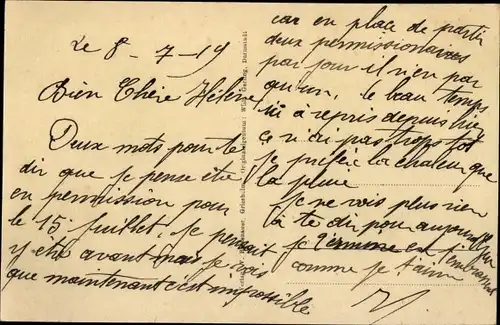 Le 8-7-19
Bien Chère Hélène
Deux mots pour te
dir que je pense être
en permission pour
le 15 Juillet. Je pensait
y être avant mais je vois
que maintenant c'est impossible
car en place de partir
deux permissionaires
par jour il n'en par
qu'un. le beau temps
ici à repris depuis hier
ce n'ai pas trops tôt
je préfère la chaleur que
la pluie
Je ne vois plus rien
à te dir pour aujourd'hui
je termine en t'embrassant
comme je t'aime
Griesheim
Darmstadt